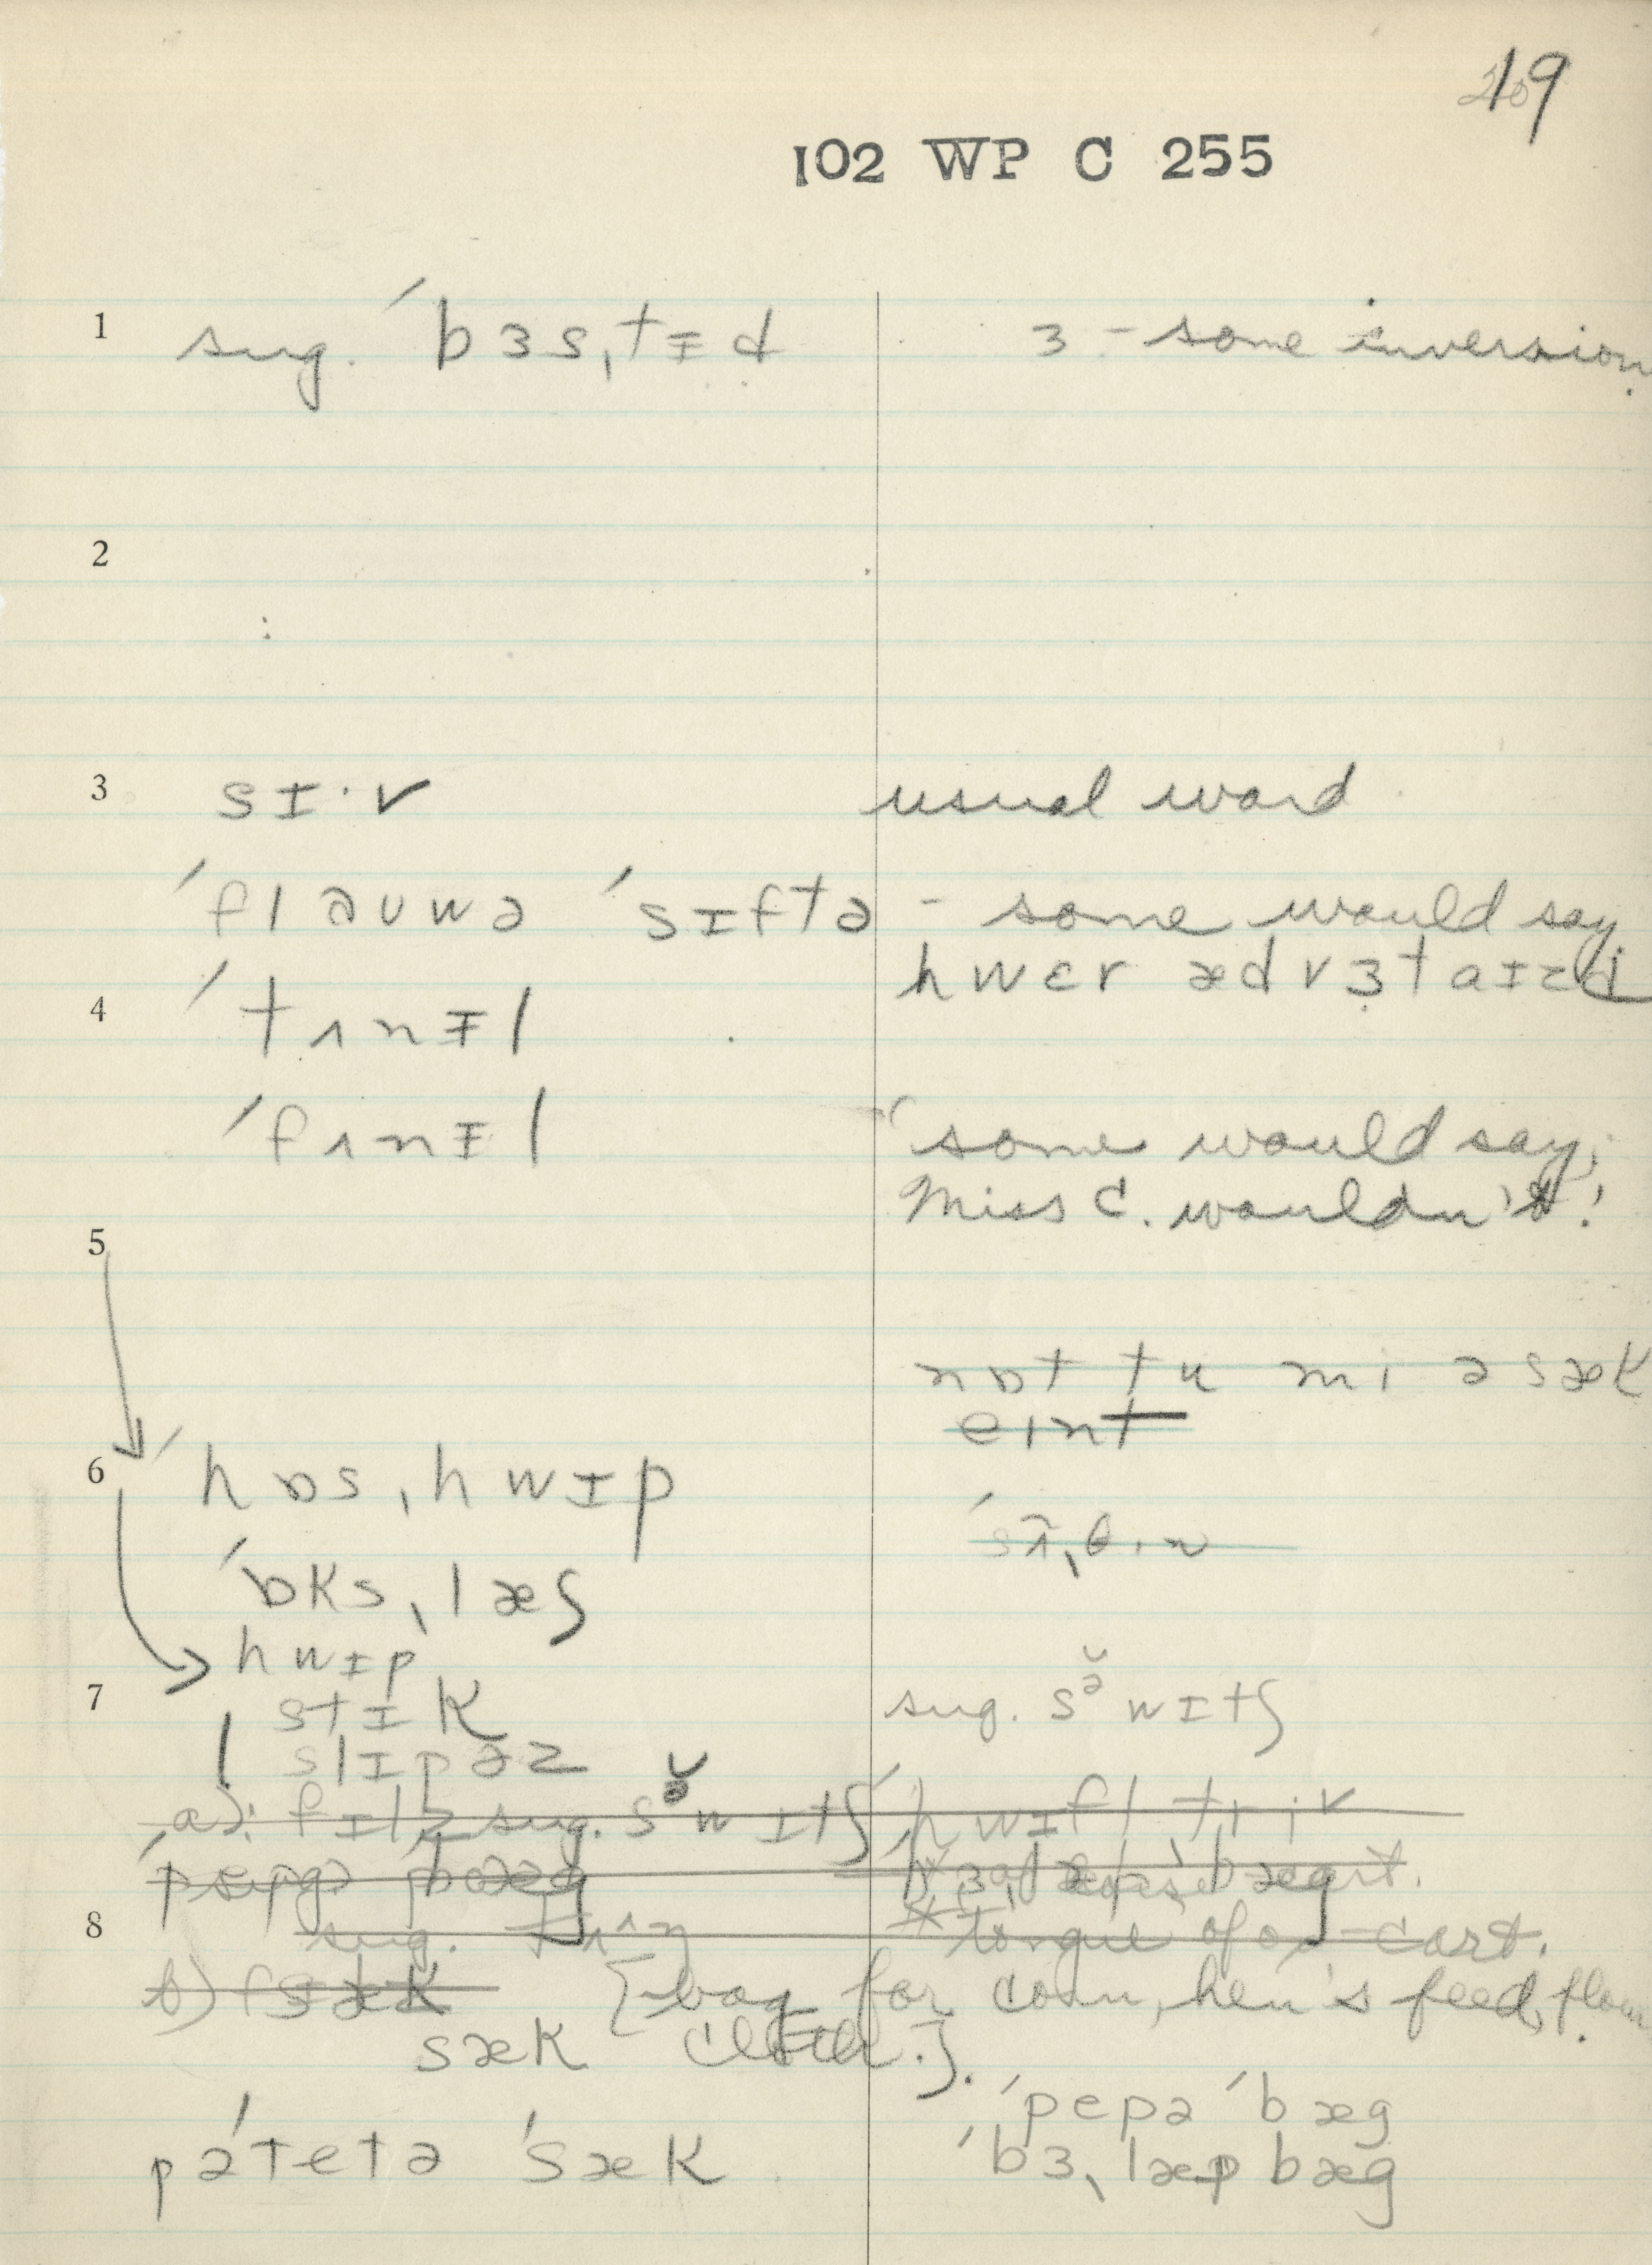 19
102 WP C 255
1 sug. ˈbɜsˌtɨd ɜ - some inversion.
2
3 sɪ·v usual word
ˈflaʊwə ˈsɪftə - some would say
hwɛr ædvɜtaɪzd
4 ˈtʌnɨl
ˈfʌnɨl some would say;
Miss C. wouldn't!
5
nɒt tu mi ə sæk
eint
6 ˈhɒsˌhwɪp
ˈɒksˌlæʃ
hwɪp
7 stɪk sug. sə̆wɪtʃ
slɪpəz
a) sug. sə̆wɪtʃ ˈhwɪfltriˑ
8 sug. tongue of ox-cart.
b) [bag for corn, hen's feed, flour.
sæk cloth.].
ˈpepə ˈbæg
pəˈtetə ˈsæk ˈbɜˌlæp bæg